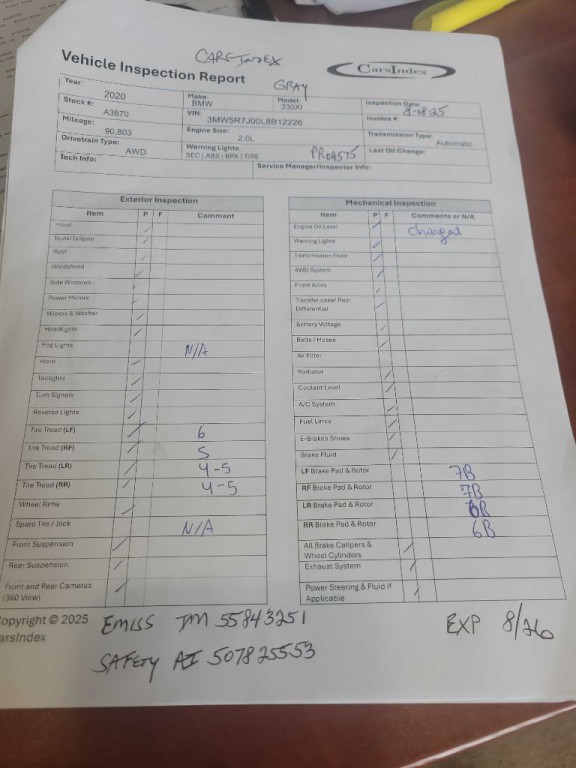 CARSINDEX
Vehicle Inspection Report
GRAY
CarsIndex
Year: 2020 Make: BMW Model: 330XI Inspection Date: 8-18-25
Stock #: A3870 VIN: 3MW5R7J00L8B12226 Invoice #:
Mileage: 90,803 Engine Size: 2.0L Transmission Type: Automatic
Drivetrain Type: AWD Warning Lights SEC | ABS | BRK | TIRE PR09575 Last Oil Change:
Tech Info: Service Manager/Inspector Info:
Exterior Inspection
Item P F Comment
Hood
Trunk/Tailgate
Roof
Windshield
Side Windows
Power Mirrors
Wipers & Washer
Headlights
Fog Lights N/A
Horn
Taillights
Turn Signals
Reverse Lights
Tire Tread (LF) 6
Tire Tread (RF) 5
Tire Tread (LR) 4-5
Tire Tread (RR) 4-5
Wheel Rims
Spare Tire / Jack N/A
Front Suspension
Rear Suspension
Front and Rear Cameras
(360 View)
Mechanical Inspection
Item P F Comments or N/A
Engine Oil Level Changed
Warning Lights
Transmission Fluid
4WD System
Front Axles
Transfer case/ Rear
Differential
Battery Voltage
Belts / Hoses
Air Filter
Radiator
Coolant Level
A/C System
Fuel Lines
E-Brakes Shoes
Brake Fluid
LF Brake Pad & Rotor 7B
RF Brake Pad & Rotor 7B
LR Brake Pad & Rotor 6B
RR Brake Pad & Rotor 6B
All Brake Calipers &
Wheel Cylinders
Exhaust System
Power Steering & Fluid if
Applicable
opyright © 2025
arsIndex
EMISS IM 55843251
EXP 8/26
SAFETY AI 507825553